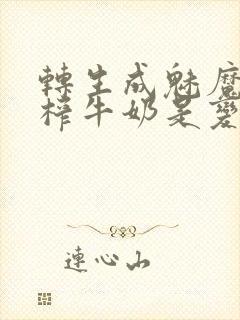 轉生成魅魔
榨牛奶是愛
連心山